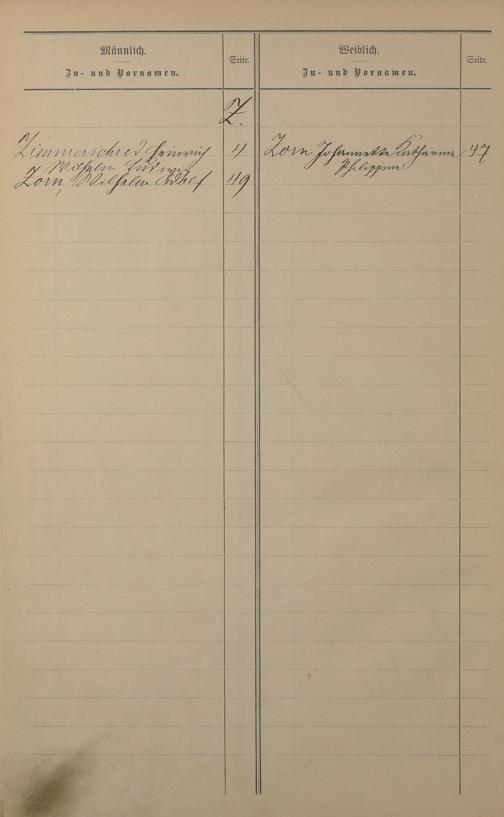 Männlich.
Zu- und Vornamen.
Seite.
Weiblich.
Zu- und Vornamen.
Seite.
Z.
Zimmerschied Heinrich 4
Wilhelm Ludwig
Zorn, Wilhelm Adolf 49
Zorn Johannette Katharine 47
Philippine